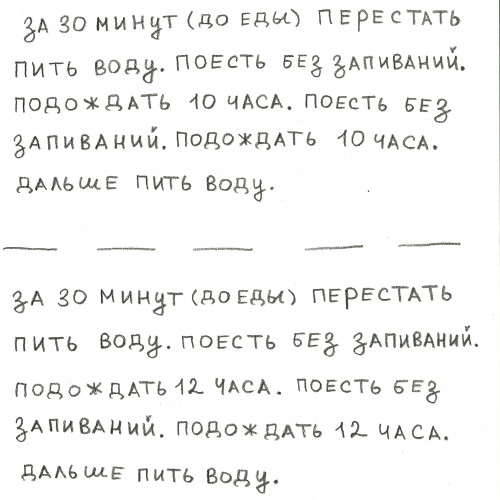 ЗА 30 МИНУТ (ДО ЕДЫ) ПЕРЕСТАТЬ
ПИТЬ ВОДУ. ПОЕСТЬ БЕЗ ЗАПИВАНИЙ.
ПОДОЖДАТЬ 10 ЧАСА. ПОЕСТЬ БЕЗ
ЗАПИВАНИЙ. ПОДОЖДАТЬ 10 ЧАСА.
ДАЛЬШЕ ПИТЬ ВОДУ.
ЗА 30 МИНУТ (ДО ЕДЫ) ПЕРЕСТАТЬ
ПИТЬ ВОДУ. ПОЕСТЬ БЕЗ ЗАПИВАНИЙ.
ПОДОЖДАТЬ 12 ЧАСА. ПОЕСТЬ БЕЗ
ЗАПИВАНИЙ. ПОДОЖДАТЬ 12 ЧАСА.
ДАЛЬШЕ ПИТЬ ВОДУ.